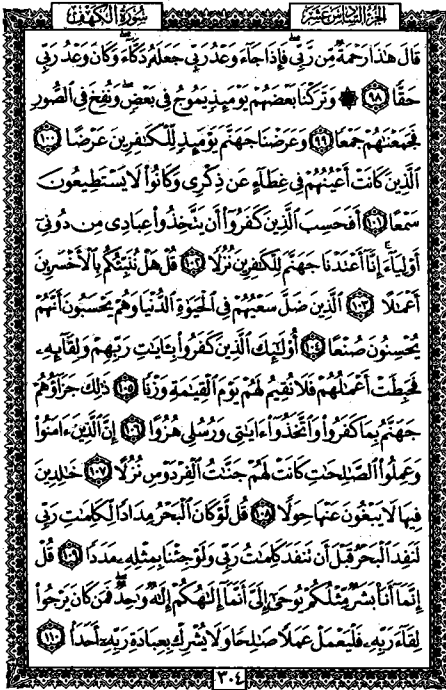 الجزء السادس عشر
سورة الكهف
قَالَ هَٰذَا رَحْمَةٌ مِّن رَّبِّي فَإِذَا جَآءَ وَعْدُ رَبِّي جَعَلَهُۥ دَكَّآءَ وَكَانَ وَعْدُ رَبِّي
حَقًّا ٩٨ ۞ وَتَرَكْنَا بَعْضَهُمْ يَوْمَئِذٍ يَمُوجُ فِي بَعْضٍ وَنُفِخَ فِي الصُّورِ
فَجَمَعْنَٰهُمْ جَمْعًا ٩٩ وَعَرَضْنَا جَهَنَّمَ يَوْمَئِذٍ لِّلْكَٰفِرِينَ عَرْضًا ١٠٠
الَّذِينَ كَانَتْ أَعْيُنُهُمْ فِي غِطَآءٍ عَن ذِكْرِي وَكَانُوا۟ لَا يَسْتَطِيعُونَ
سَمْعًا ١٠١ أَفَحَسِبَ الَّذِينَ كَفَرُوٓا۟ أَن يَتَّخِذُوا۟ عِبَادِي مِن دُونِيٓ
أَوْلِيَآءَ إِنَّآ أَعْتَدْنَا جَهَنَّمَ لِلْكَٰفِرِينَ نُزُلًا ١٠٢ قُلْ هَلْ نُنَبِّئُكُم بِالْأَخْسَرِينَ
أَعْمَٰلًا ١٠٣ الَّذِينَ ضَلَّ سَعْيُهُمْ فِي الْحَيَوٰةِ الدُّنْيَا وَهُمْ يَحْسَبُونَ أَنَّهُمْ
يُحْسِنُونَ صُنْعًا ١٠٤ أُو۟لَٰٓئِكَ الَّذِينَ كَفَرُوا۟ بِـَٔايَٰتِ رَبِّهِمْ وَلِقَآئِهِۦ
فَحَبِطَتْ أَعْمَٰلُهُمْ فَلَا نُقِيمُ لَهُمْ يَوْمَ الْقِيَٰمَةِ وَزْنًا ١٠٥ ذَٰلِكَ جَزَآؤُهُمْ
جَهَنَّمُ بِمَا كَفَرُوا۟ وَاتَّخَذُوٓا۟ ءَايَٰتِي وَرُسُلِي هُزُوًا ١٠٦ إِنَّ الَّذِينَ ءَامَنُوا۟
وَعَمِلُوا۟ الصَّٰلِحَٰتِ كَانَتْ لَهُمْ جَنَّٰتُ الْفِرْدَوْسِ نُزُلًا ١٠٧ خَٰلِدِينَ
فِيهَا لَا يَبْغُونَ عَنْهَا حِوَلًا ١٠٨ قُل لَّوْ كَانَ الْبَحْرُ مِدَادًا لِّكَلِمَٰتِ رَبِّي
لَنَفِدَ الْبَحْرُ قَبْلَ أَن تَنفَدَ كَلِمَٰتُ رَبِّي وَلَوْ جِئْنَا بِمِثْلِهِۦ مَدَدًا ١٠٩ قُلْ
إِنَّمَآ أَنَا۠ بَشَرٌ مِّثْلُكُمْ يُوحَىٰٓ إِلَيَّ أَنَّمَآ إِلَٰهُكُمْ إِلَٰهٌ وَٰحِدٌ فَمَن كَانَ يَرْجُوا۟
لِقَآءَ رَبِّهِۦ فَلْيَعْمَلْ عَمَلًا صَٰلِحًا وَلَا يُشْرِكْ بِعِبَادَةِ رَبِّهِۦٓ أَحَدًۢا ١١٠
٣٠٤